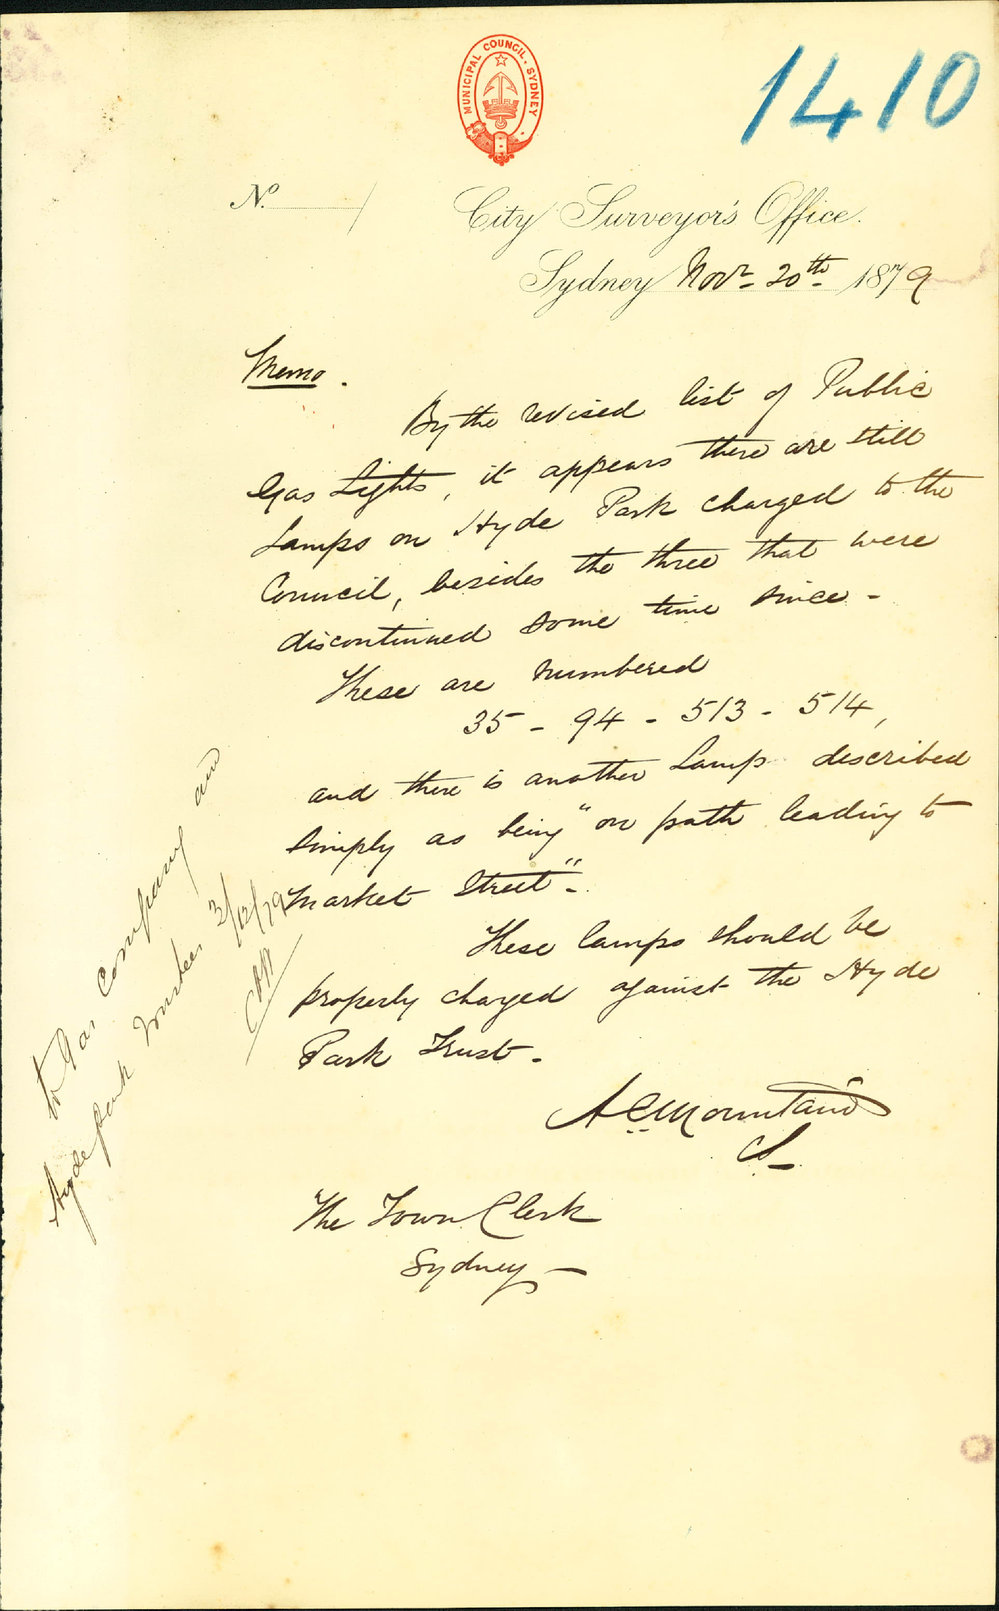 1410
MUNICIPAL COUNCIL. SYDNEY
No. /
City Surveyor's Office.
Sydney Novr 20th 1879
Memo.
By the revised list of Public
Gas Lights, it appears there are still
Lamps on Hyde Park charged to the
Council, besides the three that were
discontinued some time since -
These are numbered
35 - 94 - 513 - 514,
and there is another Lamp described
simply as being "on path leading to
Market Street" -
These lamps should be
properly charged against the Hyde
Park Trust -
A C Mountain
CS
The Town Clerk
Sydney -
to Gas Company and
Hyde Park Trustees 3/12/79